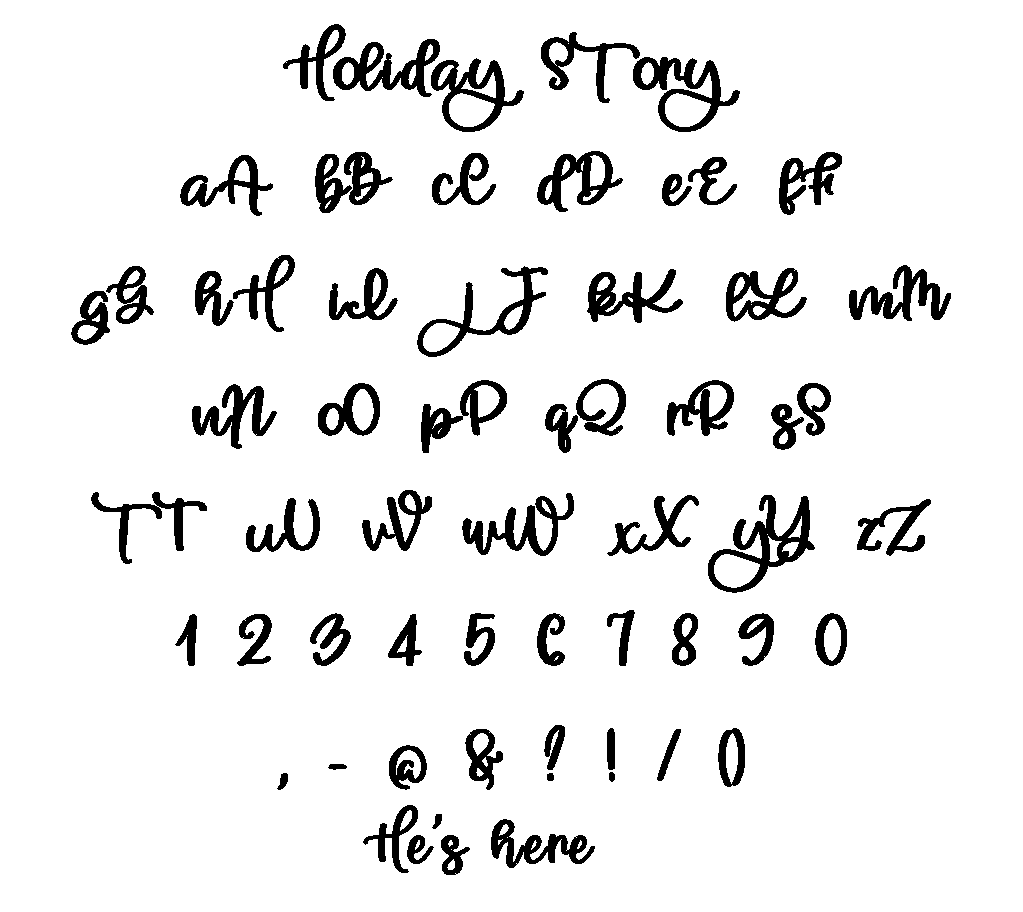 Holiday STory
aA bB cC dD eE fF
gG hH iI jJ kK lL mM
nN oO pP qQ rR sS
TT uU vV wW xX yY zZ
1 2 3 4 5 6 7 8 9 0
, - @ & ? ! / ()
He's here